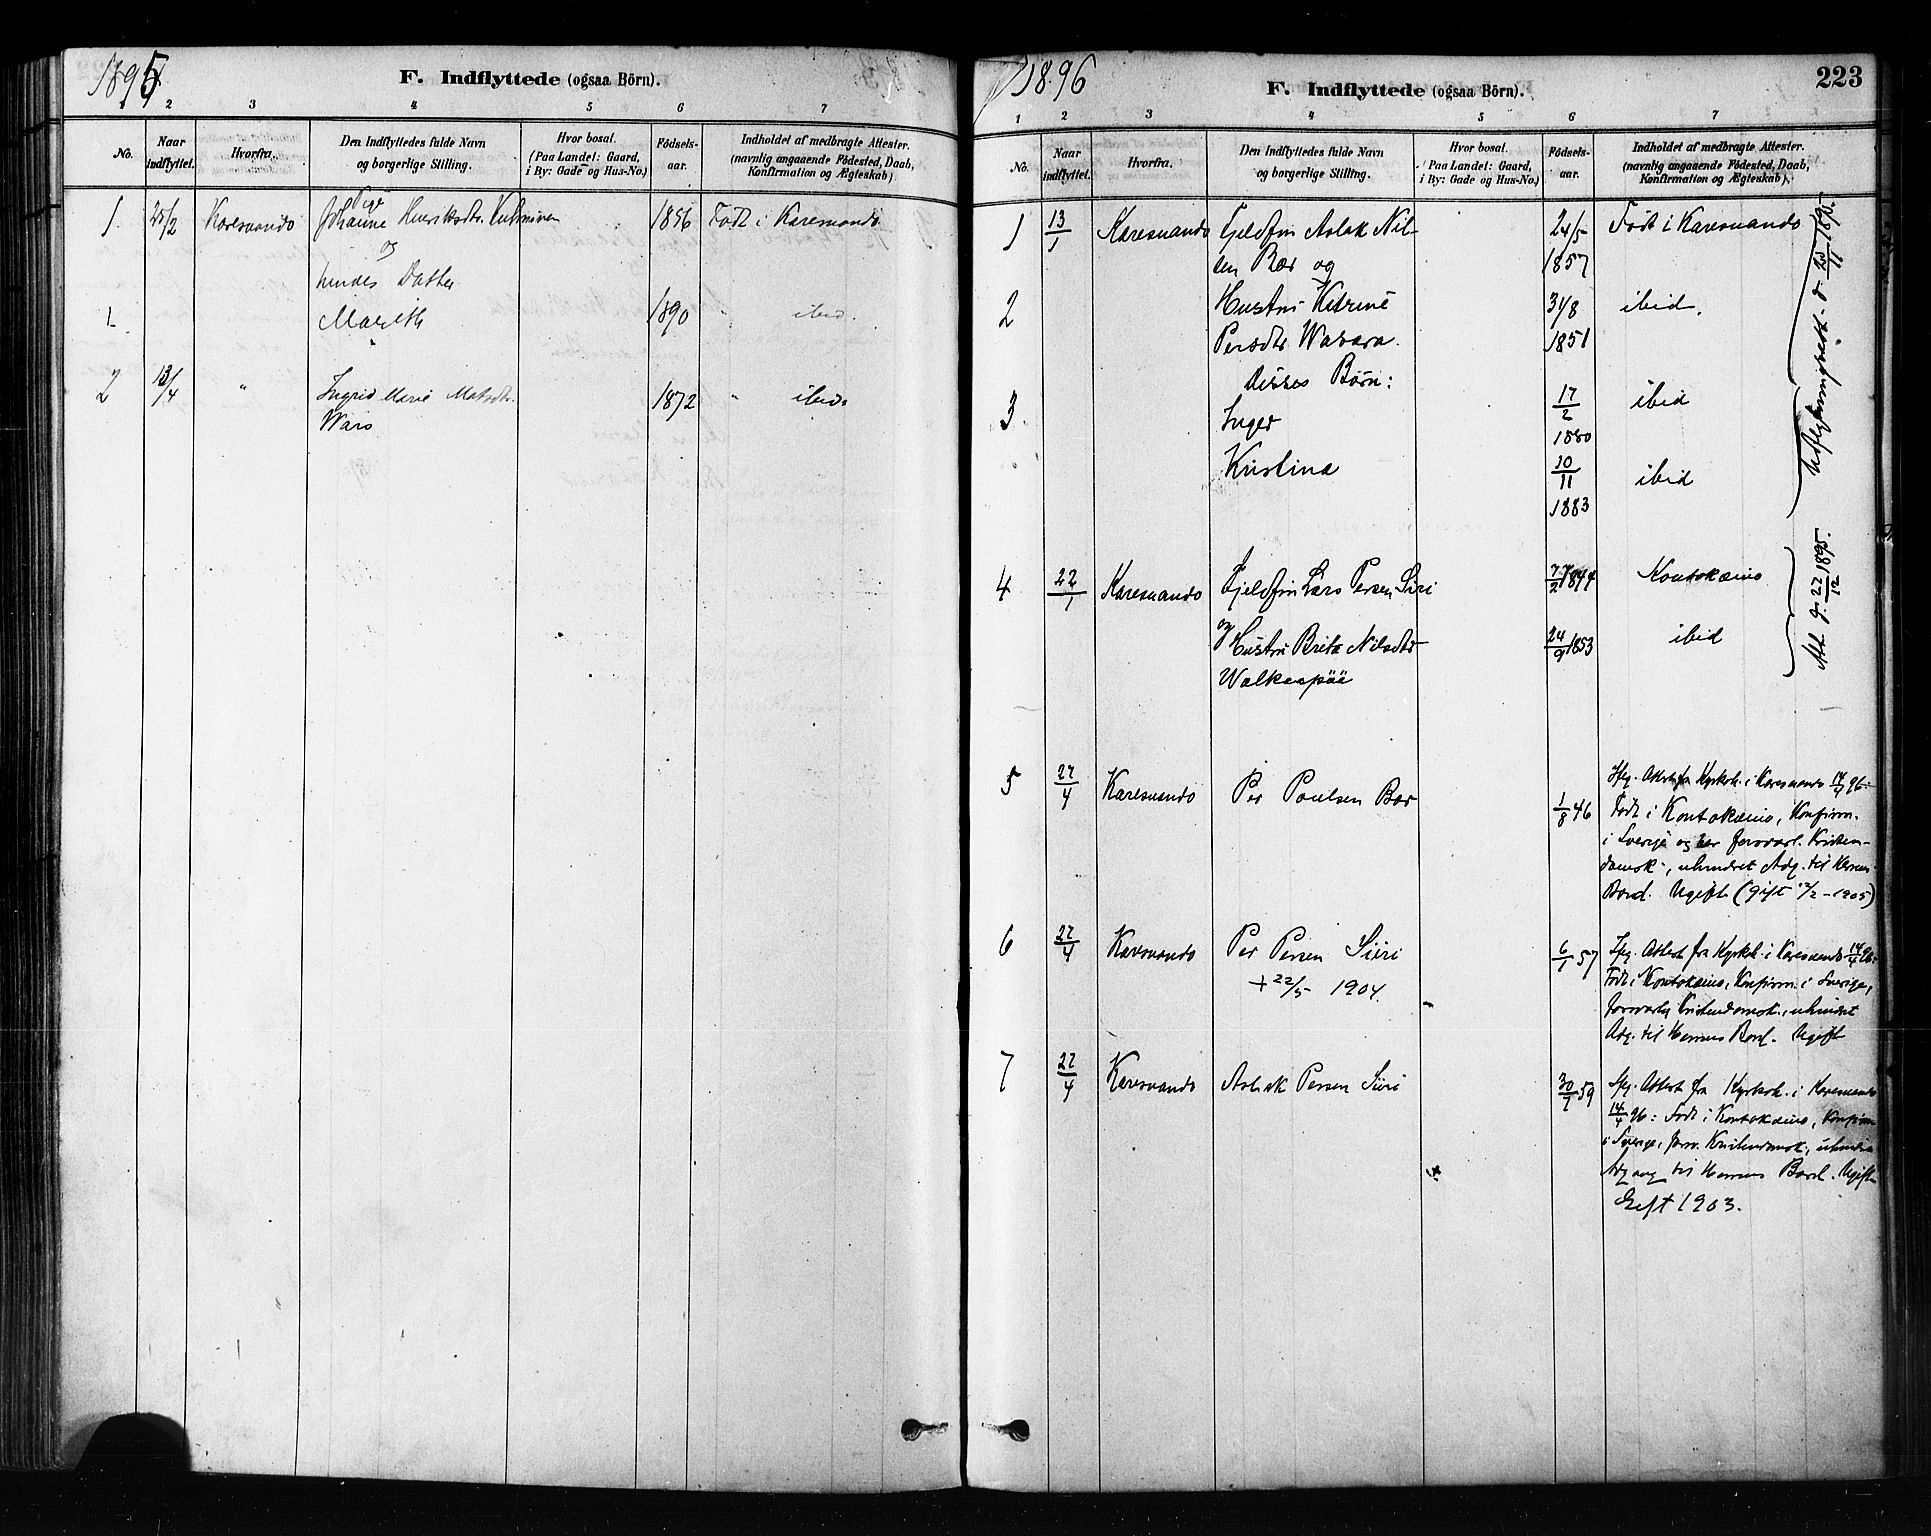 1895
F. Indflyttede (ogsaa Börn).
2 3 4 5 6 7
No. Naar indflyttet. Hvorfra. Den Indflyttedes fulde Navn og borgerlige Stilling. Hvor bosat. (Paa Landet: Gaard, i By: Gade og Hus-No.) Födsels-aar. Indholdet af medbragte Attester. (navnlig angaaende Födested, Daab, Konfirmation og Ægteskab)
Pige
1. 25/2 Karesuando Johanne Henriksdtr. 1856 Født i Karesuando
og
hendes Datter
1 Marith 1890 " ibid.
2 13/4 " Ingrid Marie Matsdtr. 1872 " ibid.
Wars
1896
F. Indflyttede (ogsaa Börn).
223
1 2 3 4 5 6 7
No. Naar indflyttet. Hvorfra. Den Indflyttedes fulde Navn og borgerlige Stilling. Hvor bosat. (Paa Landet: Gaard, i By: Gade og Hus-No.) Födsels-aar. Indholdet af medbragte Attester. (navnlig angaaende Födested, Daab, Konfirmation og Ægteskab).
1 13/1 Karesuando Fjeldfin Aslak Nil- 24/5 Født i Karesuando
sen Bær og 1857
2 Hustru Katrine 31/8 ibid.
Persdtr Wasara. 1851
disses Børn:
3 Inger 17/2 1880 ibid
Kristina 10/11 1883 ibid
Udflytningsatt. d. 25/11 1895.
4 22/1 Karesuando Fjeldfin Lars Persen Siri 7/2 1844 Koutokæino
og Hustru Brita Nilsdtr 24/9 1853 ibid
Walkeapää
Att. d. 22/12 1895.
5 27/4 Karesuando Per Poulsen Bær 1/8 46 Ifg. Attest fra Kyrkoh. i Karesuando 14/4 96:
Født i Koutokæino, Konfirm.
i Sverige og har forsvarl. Kristen-
domsk., uhindret Adg. til Herrens
Bord. Ugift (gift 12/2 - 1905)
6 27/4 Karesuando Per Persen Siiri 6/1 57 Ifg. Attest fra Kyrkoh. i Karesuando 14/4 96:
+ 22/5 1904. Født i Koutokæino, Konfirm. i Sverige,
forsvarlig Kristendomsk., uhindret
Adg. til Herrens Bord. Ugift
7 27/4 Karesuando Aslak Persen Siiri 30/7 59 Ifg. Attest fra Kyrkoh. i Karesuando
14/4 96: Født i Koutokæino, Konfirm
i Sverige, forsv. Kristendomsk., uhindr
Adgang til Herrens Bord. Ugift
Gift 1903.